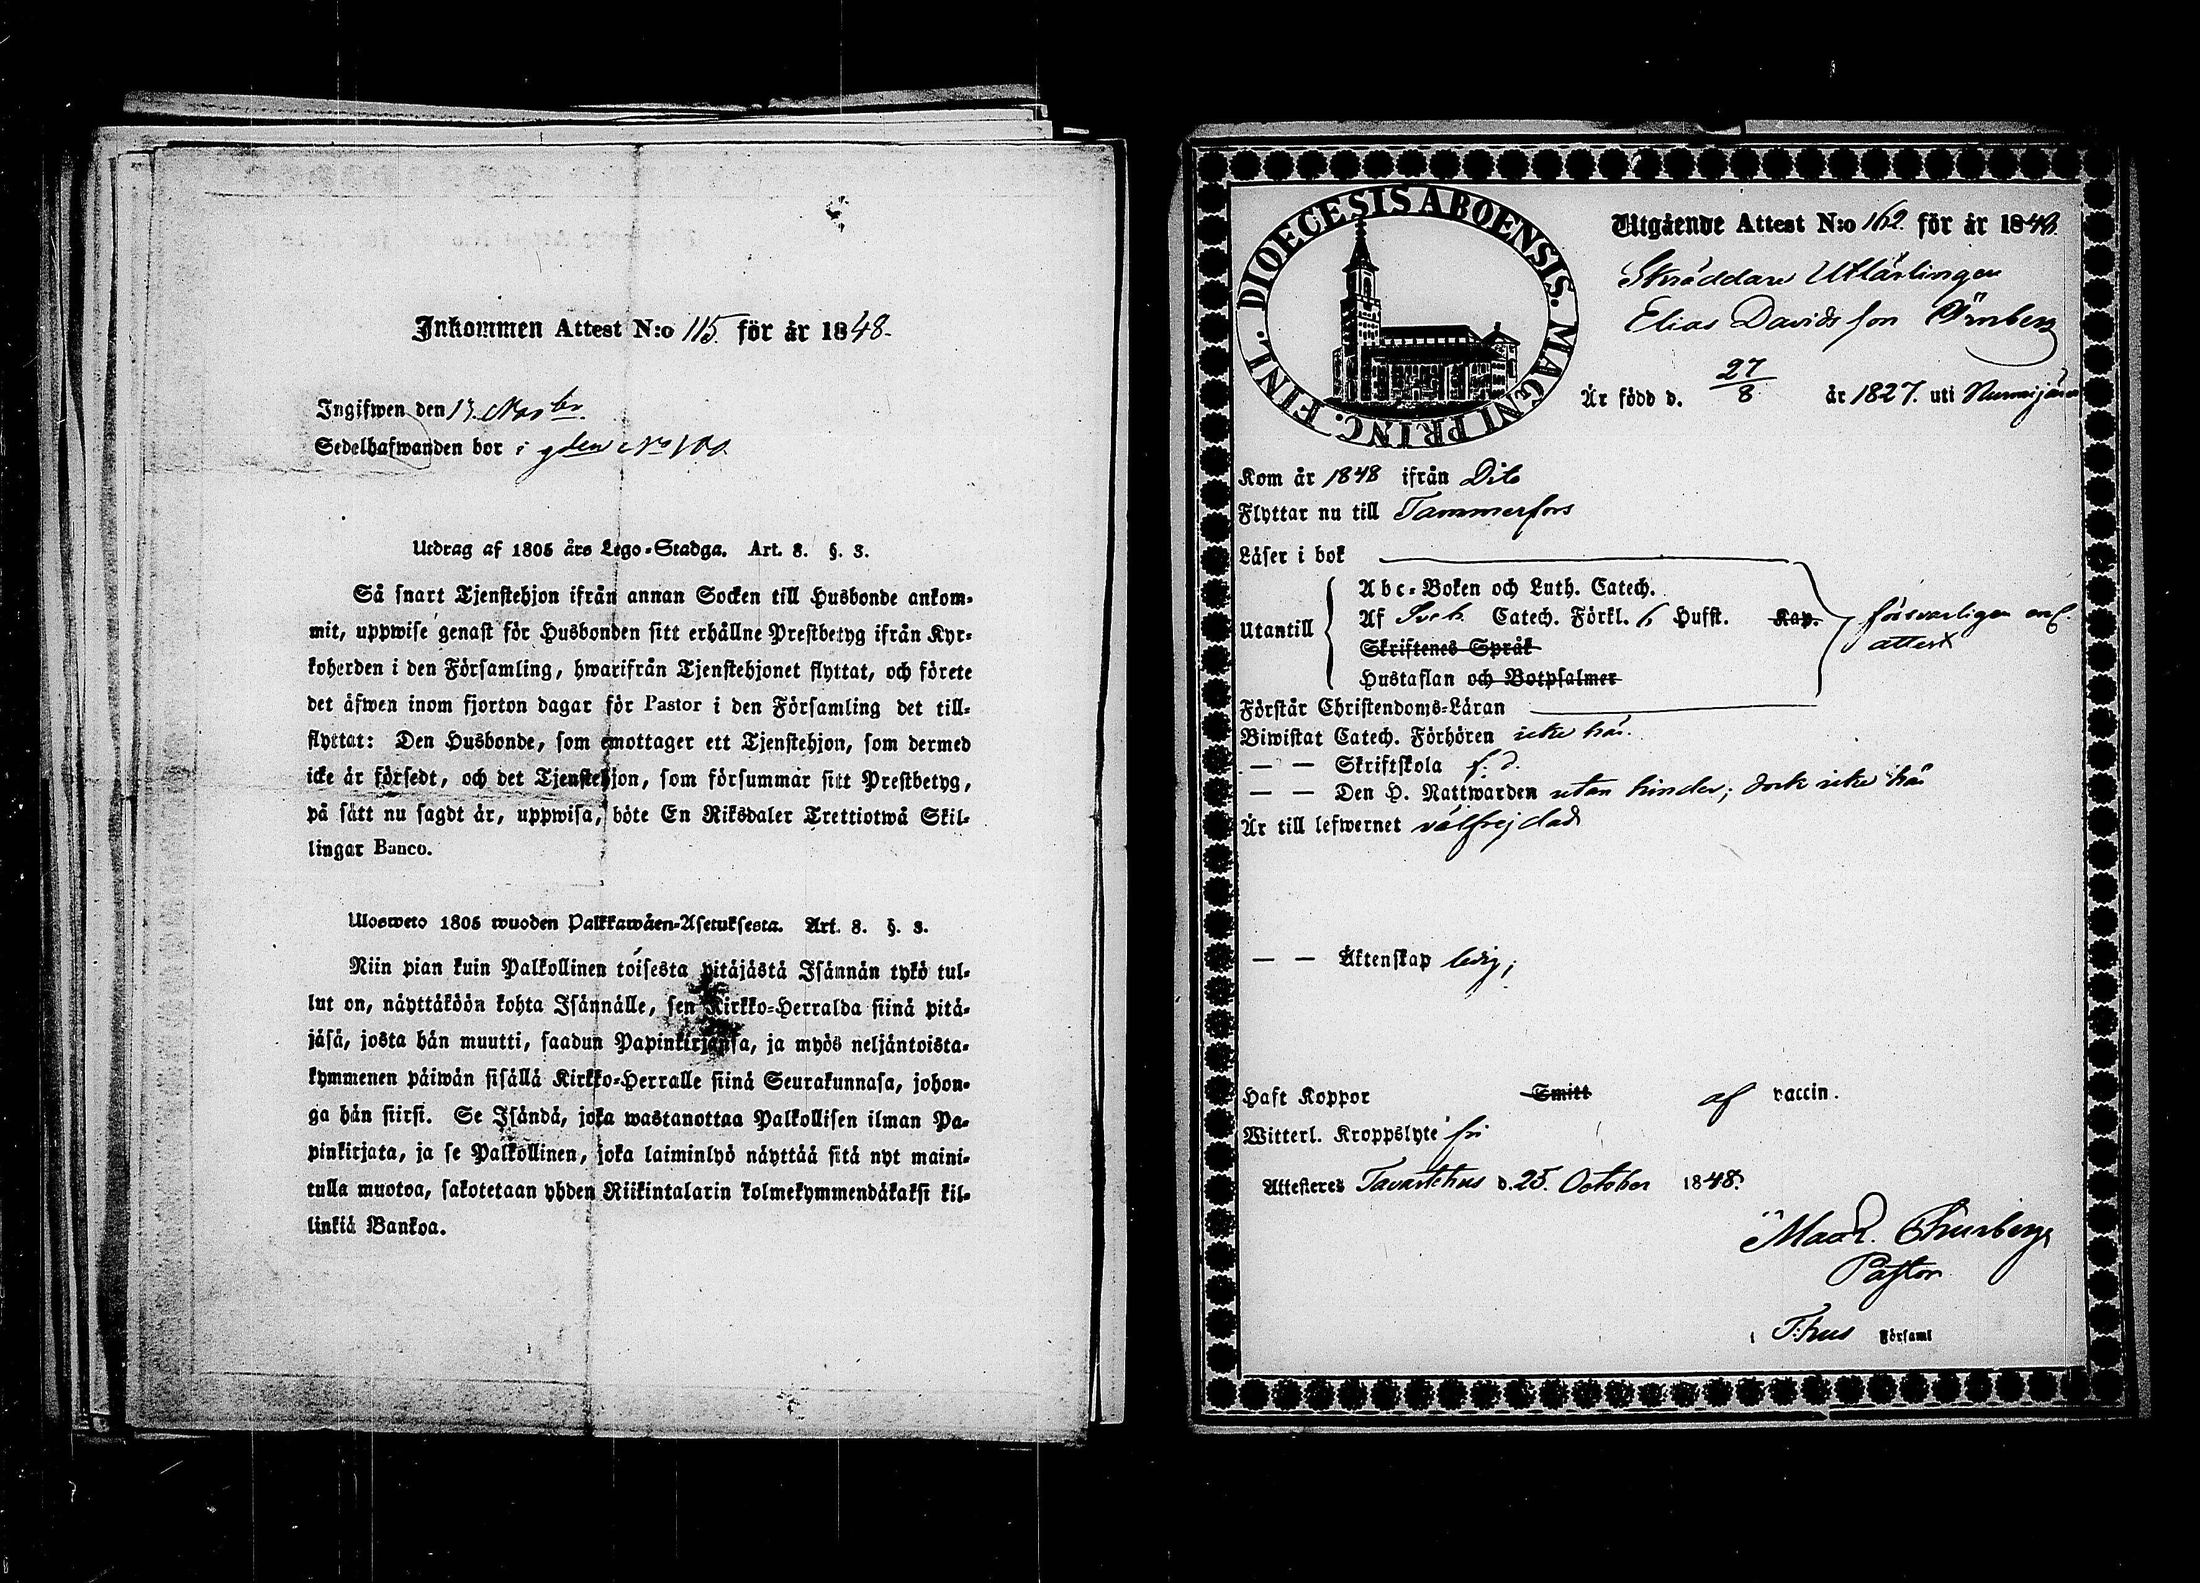 Inkommen Attest N:o 115. för år 1848.
Ingifwen den 13. Novbr.
Sedelhafwanden bor i gden No 100.
Utdrag af 1805 års Lego-Stadga. Art. 8. §. 3.
Så snart Tjenstehjon ifrån annan Socken till Husbonde ankom-
mit, uppwise genast för Husbonden sitt erhållne Prestbetyg ifrån Kyr-
koherden i den Församling, hwarifrån Tjenstehjonet flyttat, och förete
det äfwen inom fjorton dagar för Pastor i den Församling det till-
flyttat: Den Husbonde, som emottager ett Tjenstehjon, som dermed
icke är försedt, och det Tjenstehjon, som försummar sitt Prestbetyg,
på sätt nu sagdt är, uppwisa, böte En Riksdaler Trettiotwå Skil-
lingar Banco.
Ulosweto 1805 wuoden Palkkawäen-Asetuksesta. Art. 8. §. 3.
Niin pian kuin Palkollinen toisesta pitäjästä Isännän tykö tul-
lut on, näyttäköön kohta Isännälle, sen Kirkko-Herralda siinä pitä-
jäsä, josta hän muutti, saadun Papinkirjansa, ja myös neljäntoista-
kymmenen päiwän sisällä Kirkko-Herralle siinä Seurakunnasa, johon-
ga hän siirsi. Se Isändä, joka wastanottaa Palkollisen ilman Pa-
pinkirjata, ja se Palkollinen, joka laiminlyö näyttää sitä nyt maini-
tulla muotoa, sakotetaan yhden Riikintalarin kolmekymmendäkaksi kil-
linkiä Bankoa.
DIOECESIS ABOENSIS. MAGNI PRINC. FINL.
Utgående Attest N:o 162. för år 1848.
Skräddare Utlärlingen
Elias Davidsson Örnberg
Är född d. 27/8 år 1827. uti Nurmijärvi
Kom år 1848 ifrån Dito
Flyttar nu till Tammerfors
Läser i bok
Abc-Boken och Luth. Catech.
Utantill Af Sveb. Catech. Förkl. 6 Hufst. Kap. försvarligen enl.
Skriftenes Språk attest
Hustaflan och Botpsalmer
Förstår Christendoms-Läran
Biwistat Catech. Förhören icke här.
— — Skriftskola f. d.
— — Den H. Nattwarden utan hinder; dock icke här
Är till lefwernet välfrejdad
— — Äktenskap ledig;
Haft Koppor Smitt af vaccin.
Witterl. Kroppslyte fri
Attesteres Tavastehus d. 25. October 1848.
Thurberg
Pastor
i T:hus Församl